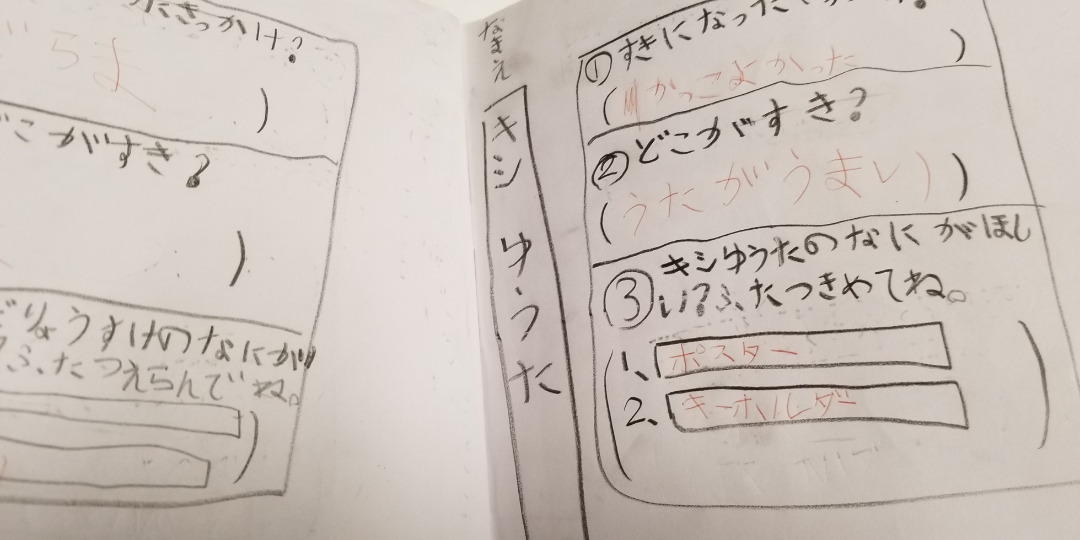 きっかけ?
らま
)
こがすき?
)
りょうすけのなにが
ふたつえらんでね。
)
なまえ
キシ ゆうた
①すきになった
(かっこよかった)
②どこがすき?
(うたがうまい)
③キシゆうたのなにがほし
い?ふたつきめてね。
1、ポスター
2、キーホルダー